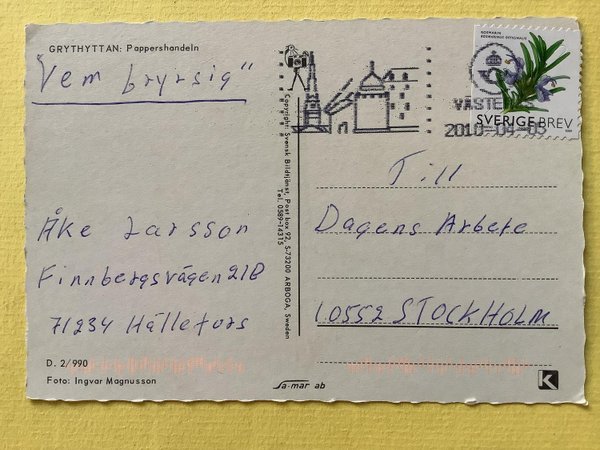 GRYTHYTTAN: Pappershandeln
"Vem bryrsig"
Åke Larsson
Finnbergsvägen 21B
71234 Hällefors
D. 2/990
Foto: Ingvar Magnusson
Copyright: Svensk Bildtjänst, Post box 92, S-73200 ARBOGA, Sweden
Tel. 0589-14315
sa-mar ab
ROSMARIN
ROSMARINUS OFFICINALIS
SVERIGE BREV
VÄSTE
2010-04-03
Till
Dagens Arbete
10552 STOCKHOLM
K